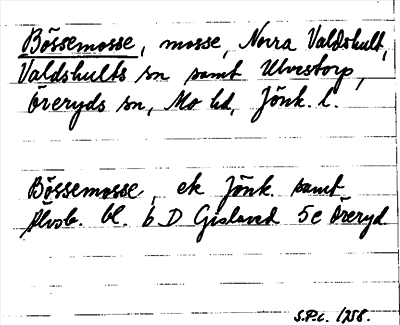 Bössemosse, mosse, Norra Valdshult,
Valdshults sn samt Ulvestorp,
Öreryds sn, Mo hd, Jönk. l.
Bössemosse, ek Jönk. samt
Älvsb. bl. 6 D Gislaved 5e Öreryd
S.P.c. 1958.